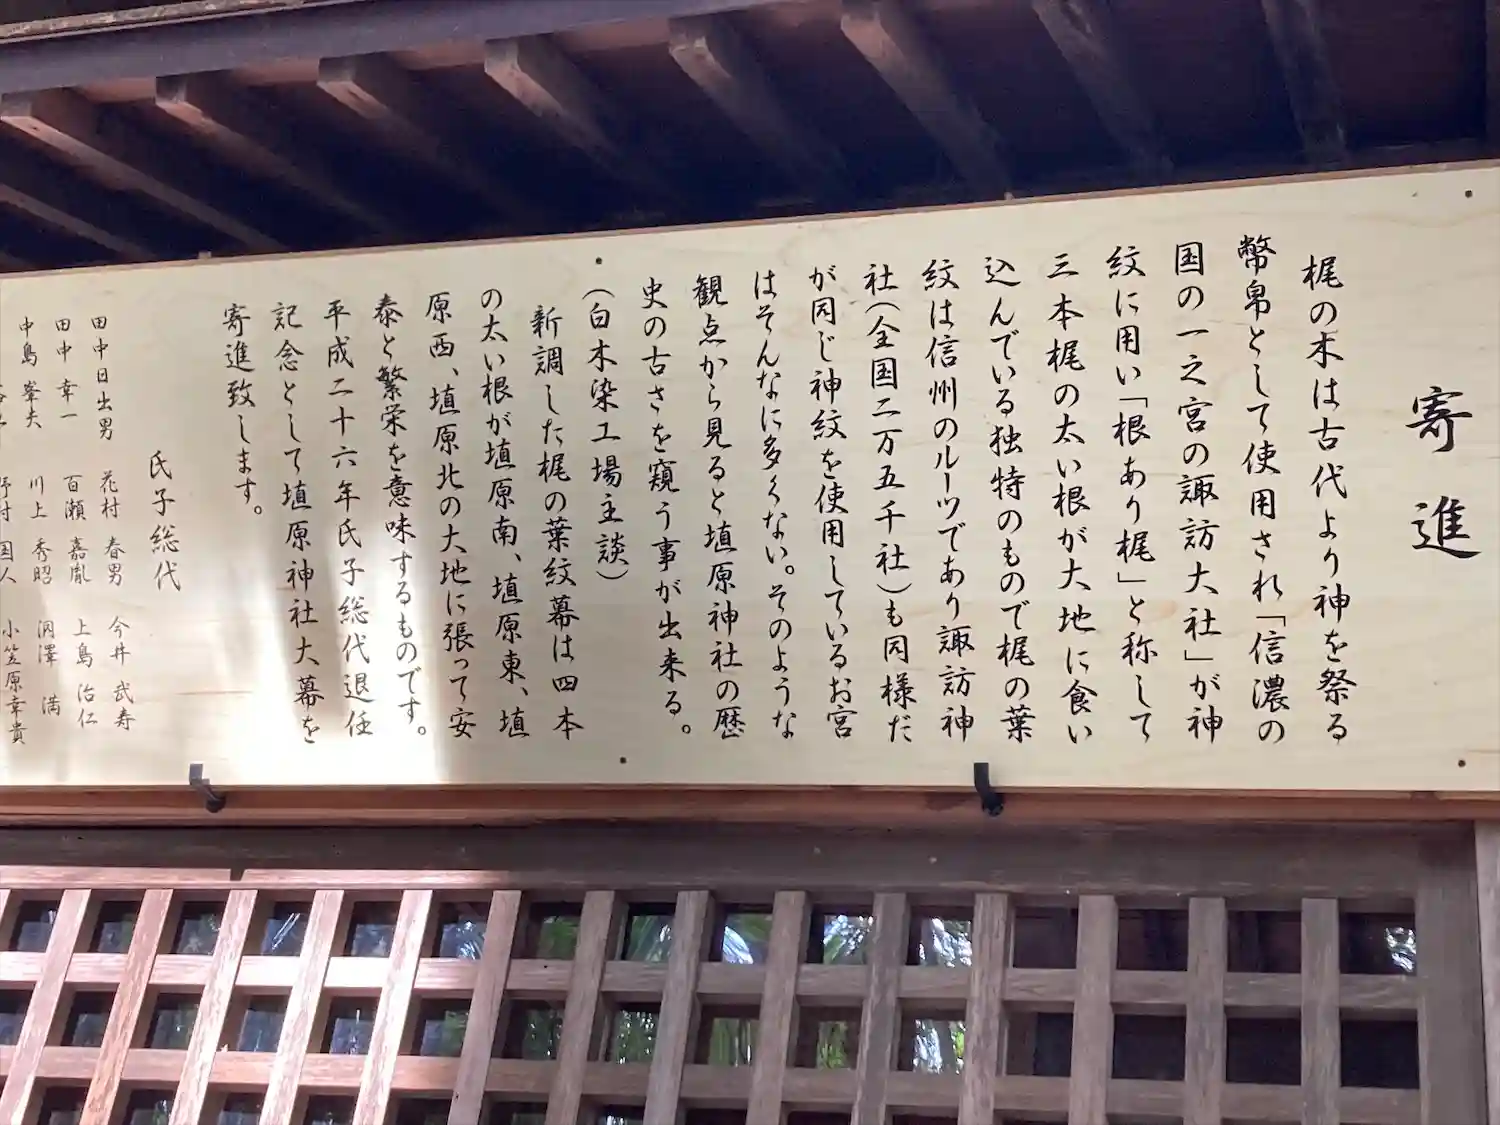 寄進
梶の木は古代より神を祭る
幣帛として使用され「信濃の
国の一之宮の諏訪大社」が神
紋に用い「根あり梶」と称して
三本梶の太い根が大地に食い
込んでいる独特のもので梶の葉
紋は信州のルーツであり諏訪神
社(全国二万五千社)も同様だ
が同じ神紋を使用しているお宮
はそんなに多くない。そのような
観点から見ると埴原神社の歴
史の古さを窺う事が出来る。
(白木染工場主談)
新調した梶の葉紋幕は四本
の太い根が埴原南、埴原東、埴
原西、埴原北の大地に張って安
泰と繁栄を意味するものです。
平成二十六年氏子総代退任
記念として埴原神社大幕を
寄進致します。
氏子総代
田中日出男 花村春男 今井武寿
田中幸一 百瀬嘉胤 上島治仁
中島峯夫 川上秀昭 洞澤満
小笠原幸貴